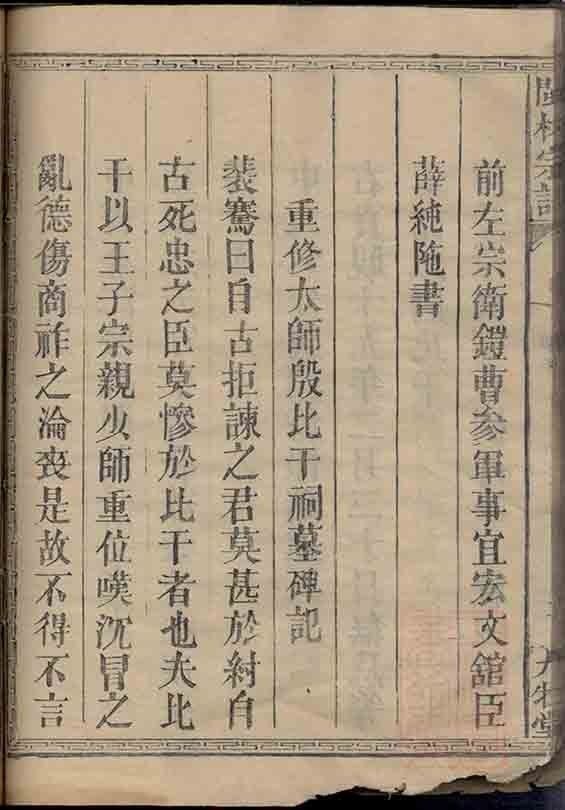 前左宗衛鎧曹參軍事宜宏文舘臣
薛純陁書
重修太師殷比干祠墓碑記
裴騫曰自古拒諫之君莫甚於紂自
古死忠之臣莫慘於比干者也夫比
干以王子宗親少師重位嘆沉冒之
亂德傷商祚之淪喪是故不得不言